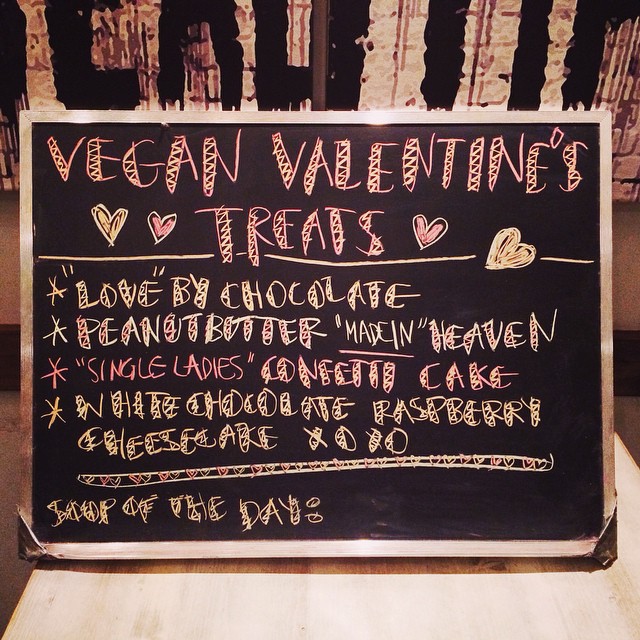 VEGAN VALENTINE'S
TREATS
* "LOVE" BY CHOCOLATE
* PEANUT BUTTER "MADE IN" HEAVEN
* "SINGLE LADIES" CONFETTI CAKE
* WHITE CHOCOLATE RASPBERRY
CHEESECAKE XOXO
SOUP OF THE DAY: